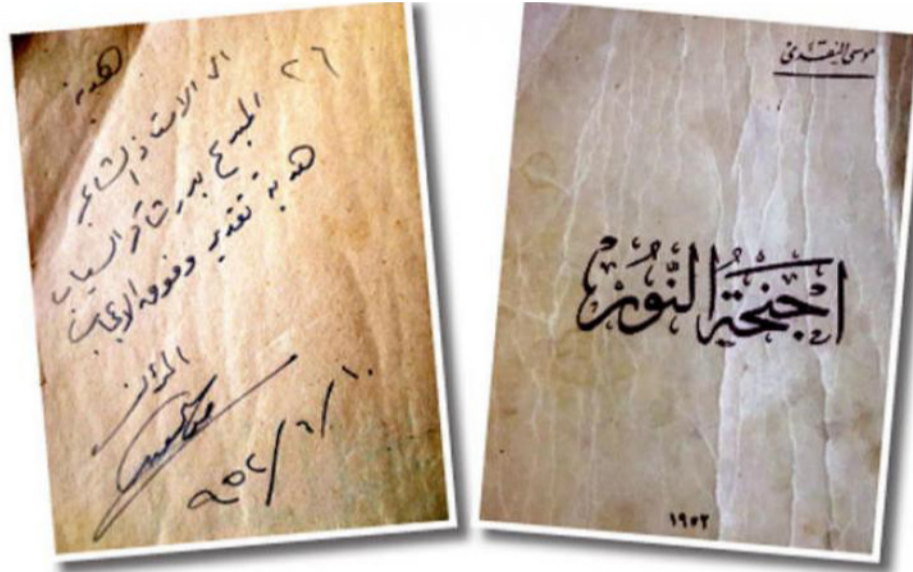 موسى النقدي
اجنحة النُّور
١٩٥٢
هدية
٢٦
الى الاستاذ الشاعر
المبدع بدر شاكر السياب
هدية تقدير وفوق الاعجاب
المؤلف
٩٥٢/٦/١٠